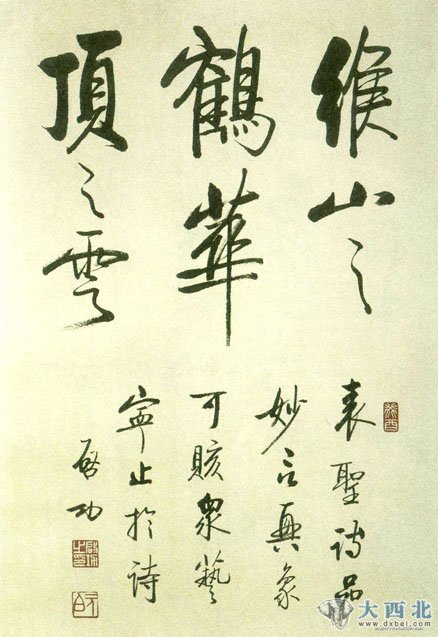 緱山之
鶴華
頂之雲
癸酉
表聖詩品
妙言興象
可賅衆藝
寧止於詩
啟功
元白
大西北
www.dxbei.com